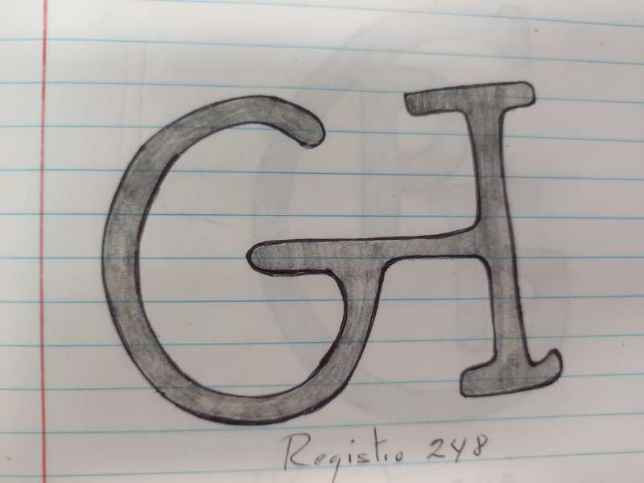 GH
Registro 248